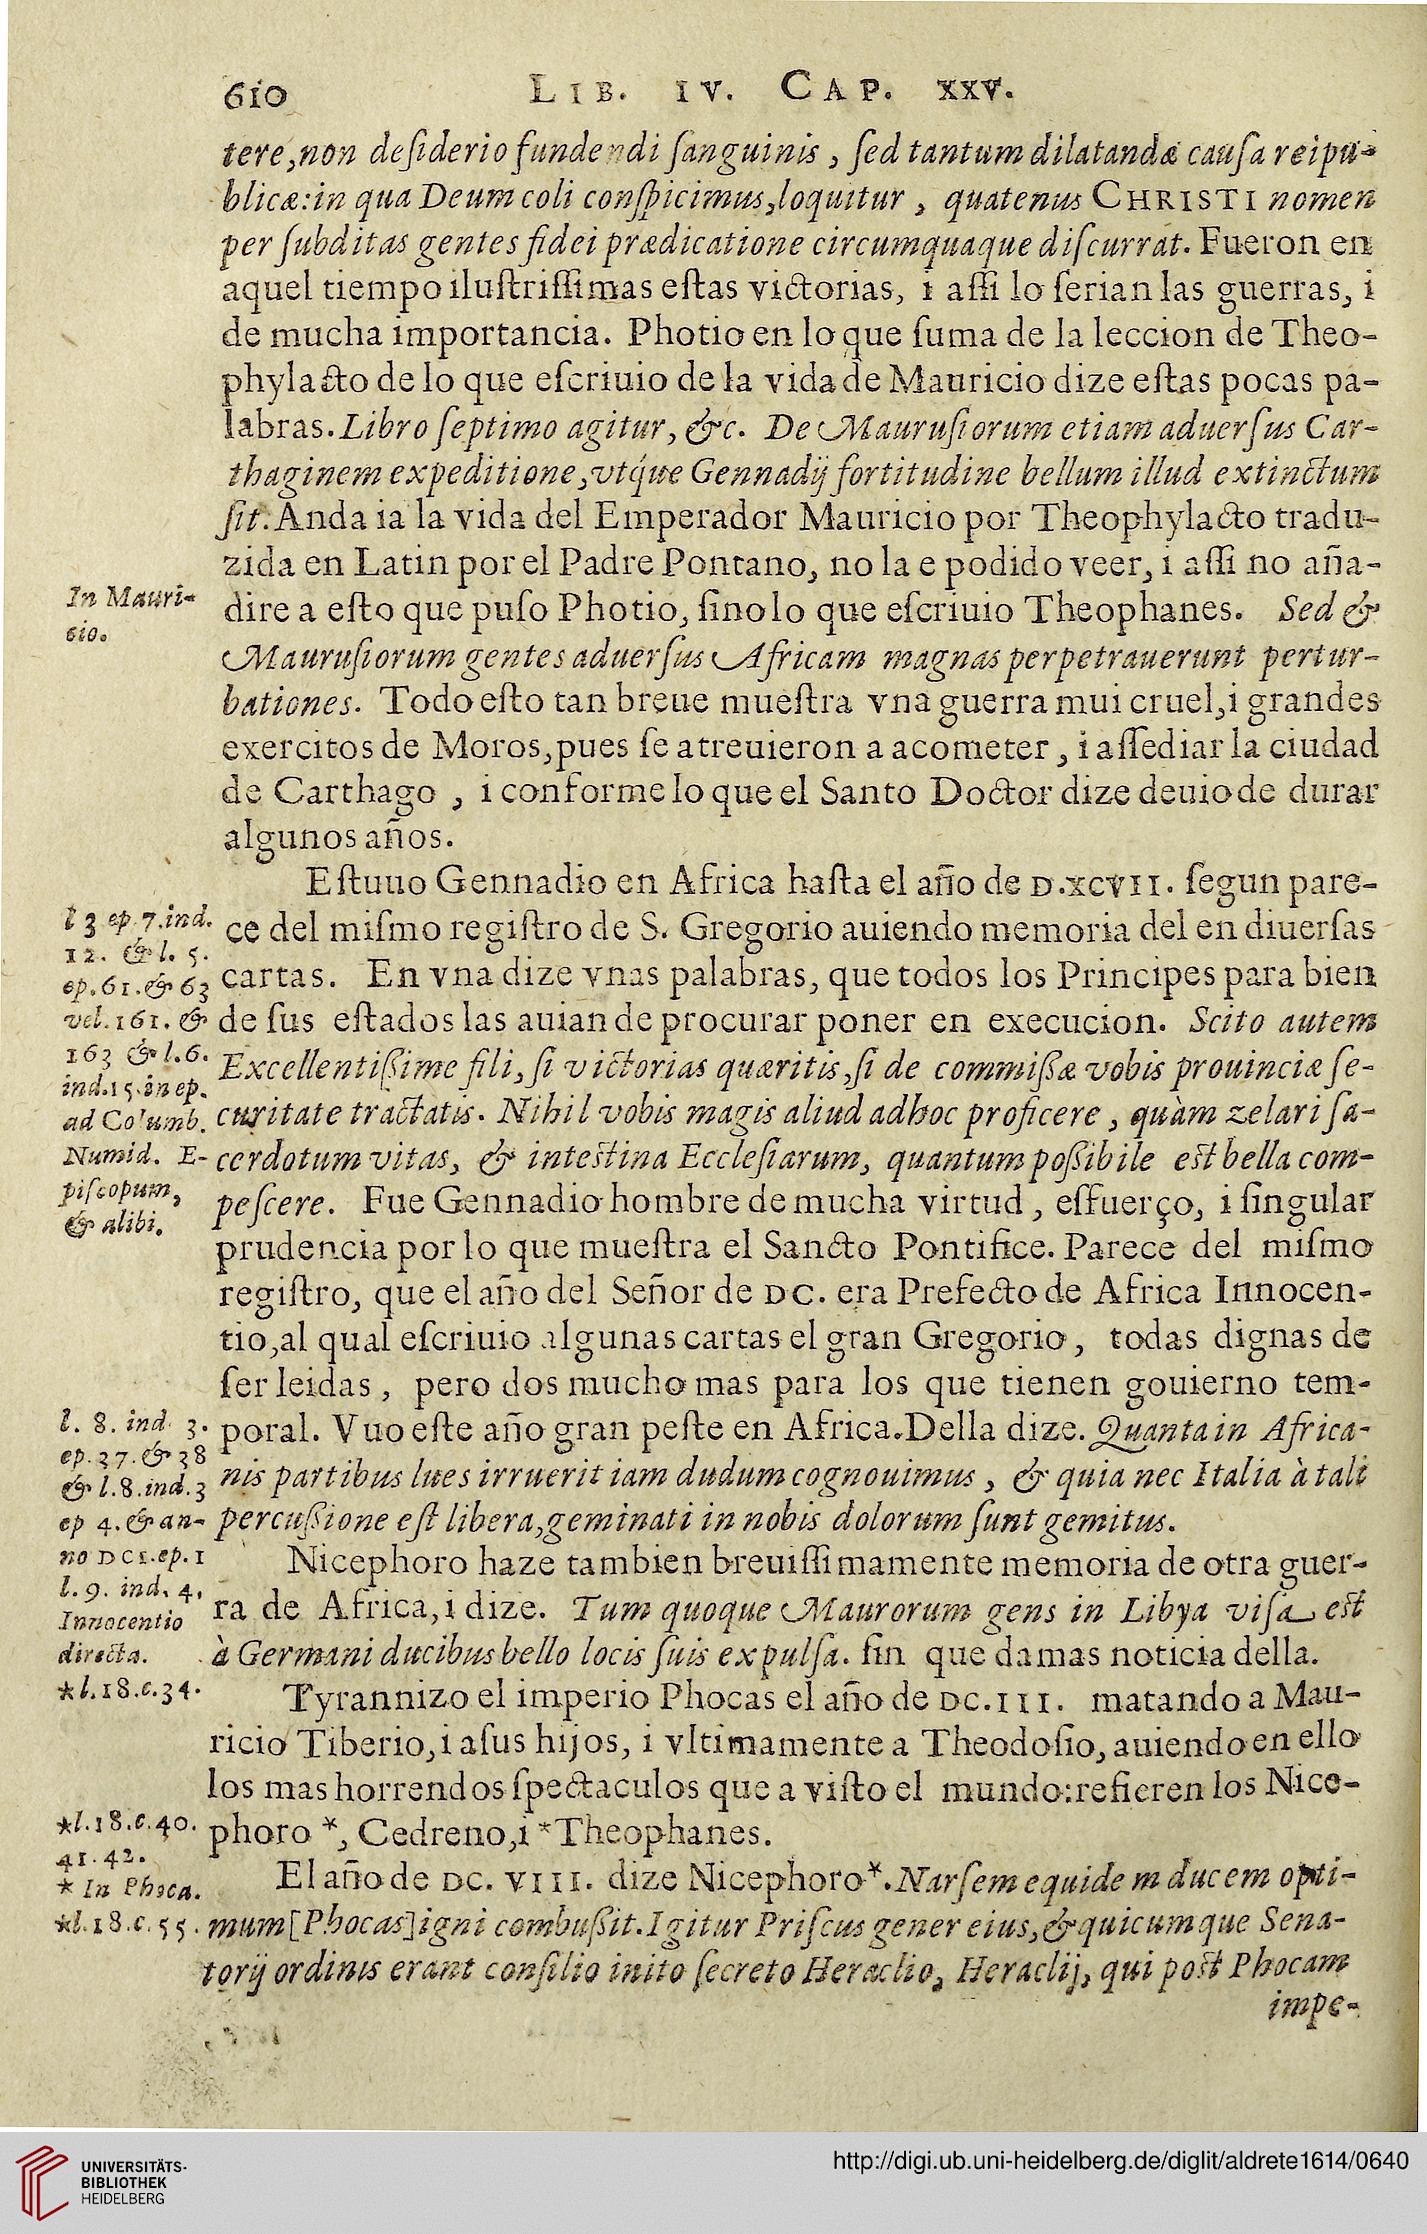 610 LIB. IV. CAP. XXV.
tere,non desiderio fundendi sanguinis , sed tantum dilatandæ causa reipu-
blicæ:in qua Deum coli conspicimus,loquitur , quatenus CHRISTI nomen
per subditas gentes fidei prædicatione circumquaque discurrat. Fueron en
aquel tiempo ilustrissimas estas victorias, i assi lo serian las guerras, i
de mucha importancia. Photio en lo que suma de la leccion de Theo-
phylacto de lo que escriuio de la vida de Mauricio dize estas pocas pa-
labras. Libro septimo agitur, &c. De Maurusiorum etiam aduersus Car-
thaginem expeditione,vtq́ue Gennadij fortitudine bellum illud extinctum
sit. Anda ia la vida del Emperador Mauricio por Theophylacto tradu-
zida en Latin por el Padre Pontano, no la e podido veer, i assi no aña-
In Mauri-
cio.
dire a esto que puso Photio, sino lo que escriuio Theophanes. Sed &
Maurusiorum gentes aduersus Africam magnas perpetrauerunt pertur-
bationes. Todo esto tan breue muestra vna guerra mui cruel,i grandes
exercitos de Moros,pues se atreuieron a acometer , i assediar la ciudad
de Carthago , i conforme lo que el Santo Doctor dize deuio de durar
algunos años.
Estuuo Gennadio en Africa hasta el año de D.XCVII. segun pare-
l 3 ep 7.ind.
12. & l. 5.
ep.61.& 63
vel.161. &
163 & l.6.
ind.15.in ep.
ad Columb.
Numid. E-
piscopum,
& alibi.
ce del mismo registro de S. Gregorio auiendo memoria del en diuersas
cartas. En vna dize vnas palabras, que todos los Principes para bien
de sus estados las auian de procurar poner en execucion. Scito autem
Excellentissime fili, si victorias quæritis,si de commissæ vobis prouinciæ se-
curitate tractatis. Nihil vobis magis aliud adhoc proficere , quàm zelari sa-
cerdotum vitas, & intestina Ecclesiarum, quantum possibile est bella com-
pescere. Fue Gennadio hombre de mucha virtud , esfuerço, i singular
prudencia por lo que muestra el Sancto Pontifice. Parece del mismo
registro, que el año del Señor de DC. era Prefecto de Africa Innocen-
tio,al qual escriuio algunas cartas el gran Gregorio , todas dignas de
ser leidas , pero dos mucho mas para los que tienen gouierno tem-
l. 8. ind 3.
ep.37.& 38
& l.8.ind.3
ep 4.& an-
no DCI.ep.1
l.9. ind. 4.
Innocentio
directa.
poral. Vuo este año gran peste en Africa.Della dize. Quanta in Africa-
nis partibus lues irruerit iam dudum cognouimus , & quia nec Italia à tali
percussione est libera,geminati in nobis dolorum sunt gemitus.
Nicephoro haze tambien breuissimamente memoria de otra guer-
ra de Africa,i dize. Tum quoque Maurorum gens in Libya visa est
à Germani ducibus bello locis suis expulsa. sin que da mas noticia della.
*l.18.c.34.
Tyrannizo el imperio Phocas el año de DC.III. matando a Mau-
ricio Tiberio,i a sus hijos, i vltimamente a Theodosio, auiendo en ello
los mas horrendos spectaculos que a visto el mundo:refieren los Nice-
*l.18.c.40.
41.42.
* In Phoca.
*l.18.c.55.
phoro *, Cedreno,i *Theophanes.
El año de DC. VIII. dize Nicephoro*.Narsem equidem ducem opti-
mum[Phocas]igni combussit.Igitur Priscus gener eius,& quicumque Sena-
torij ordinis erant consilio inito secreto Heraclio, Heraclij, qui post Phocam
impe-
UNIVERSITÄTS-
BIBLIOTHEK
HEIDELBERG
http://digi.ub.uni-heidelberg.de/diglit/aldrete1614/0640